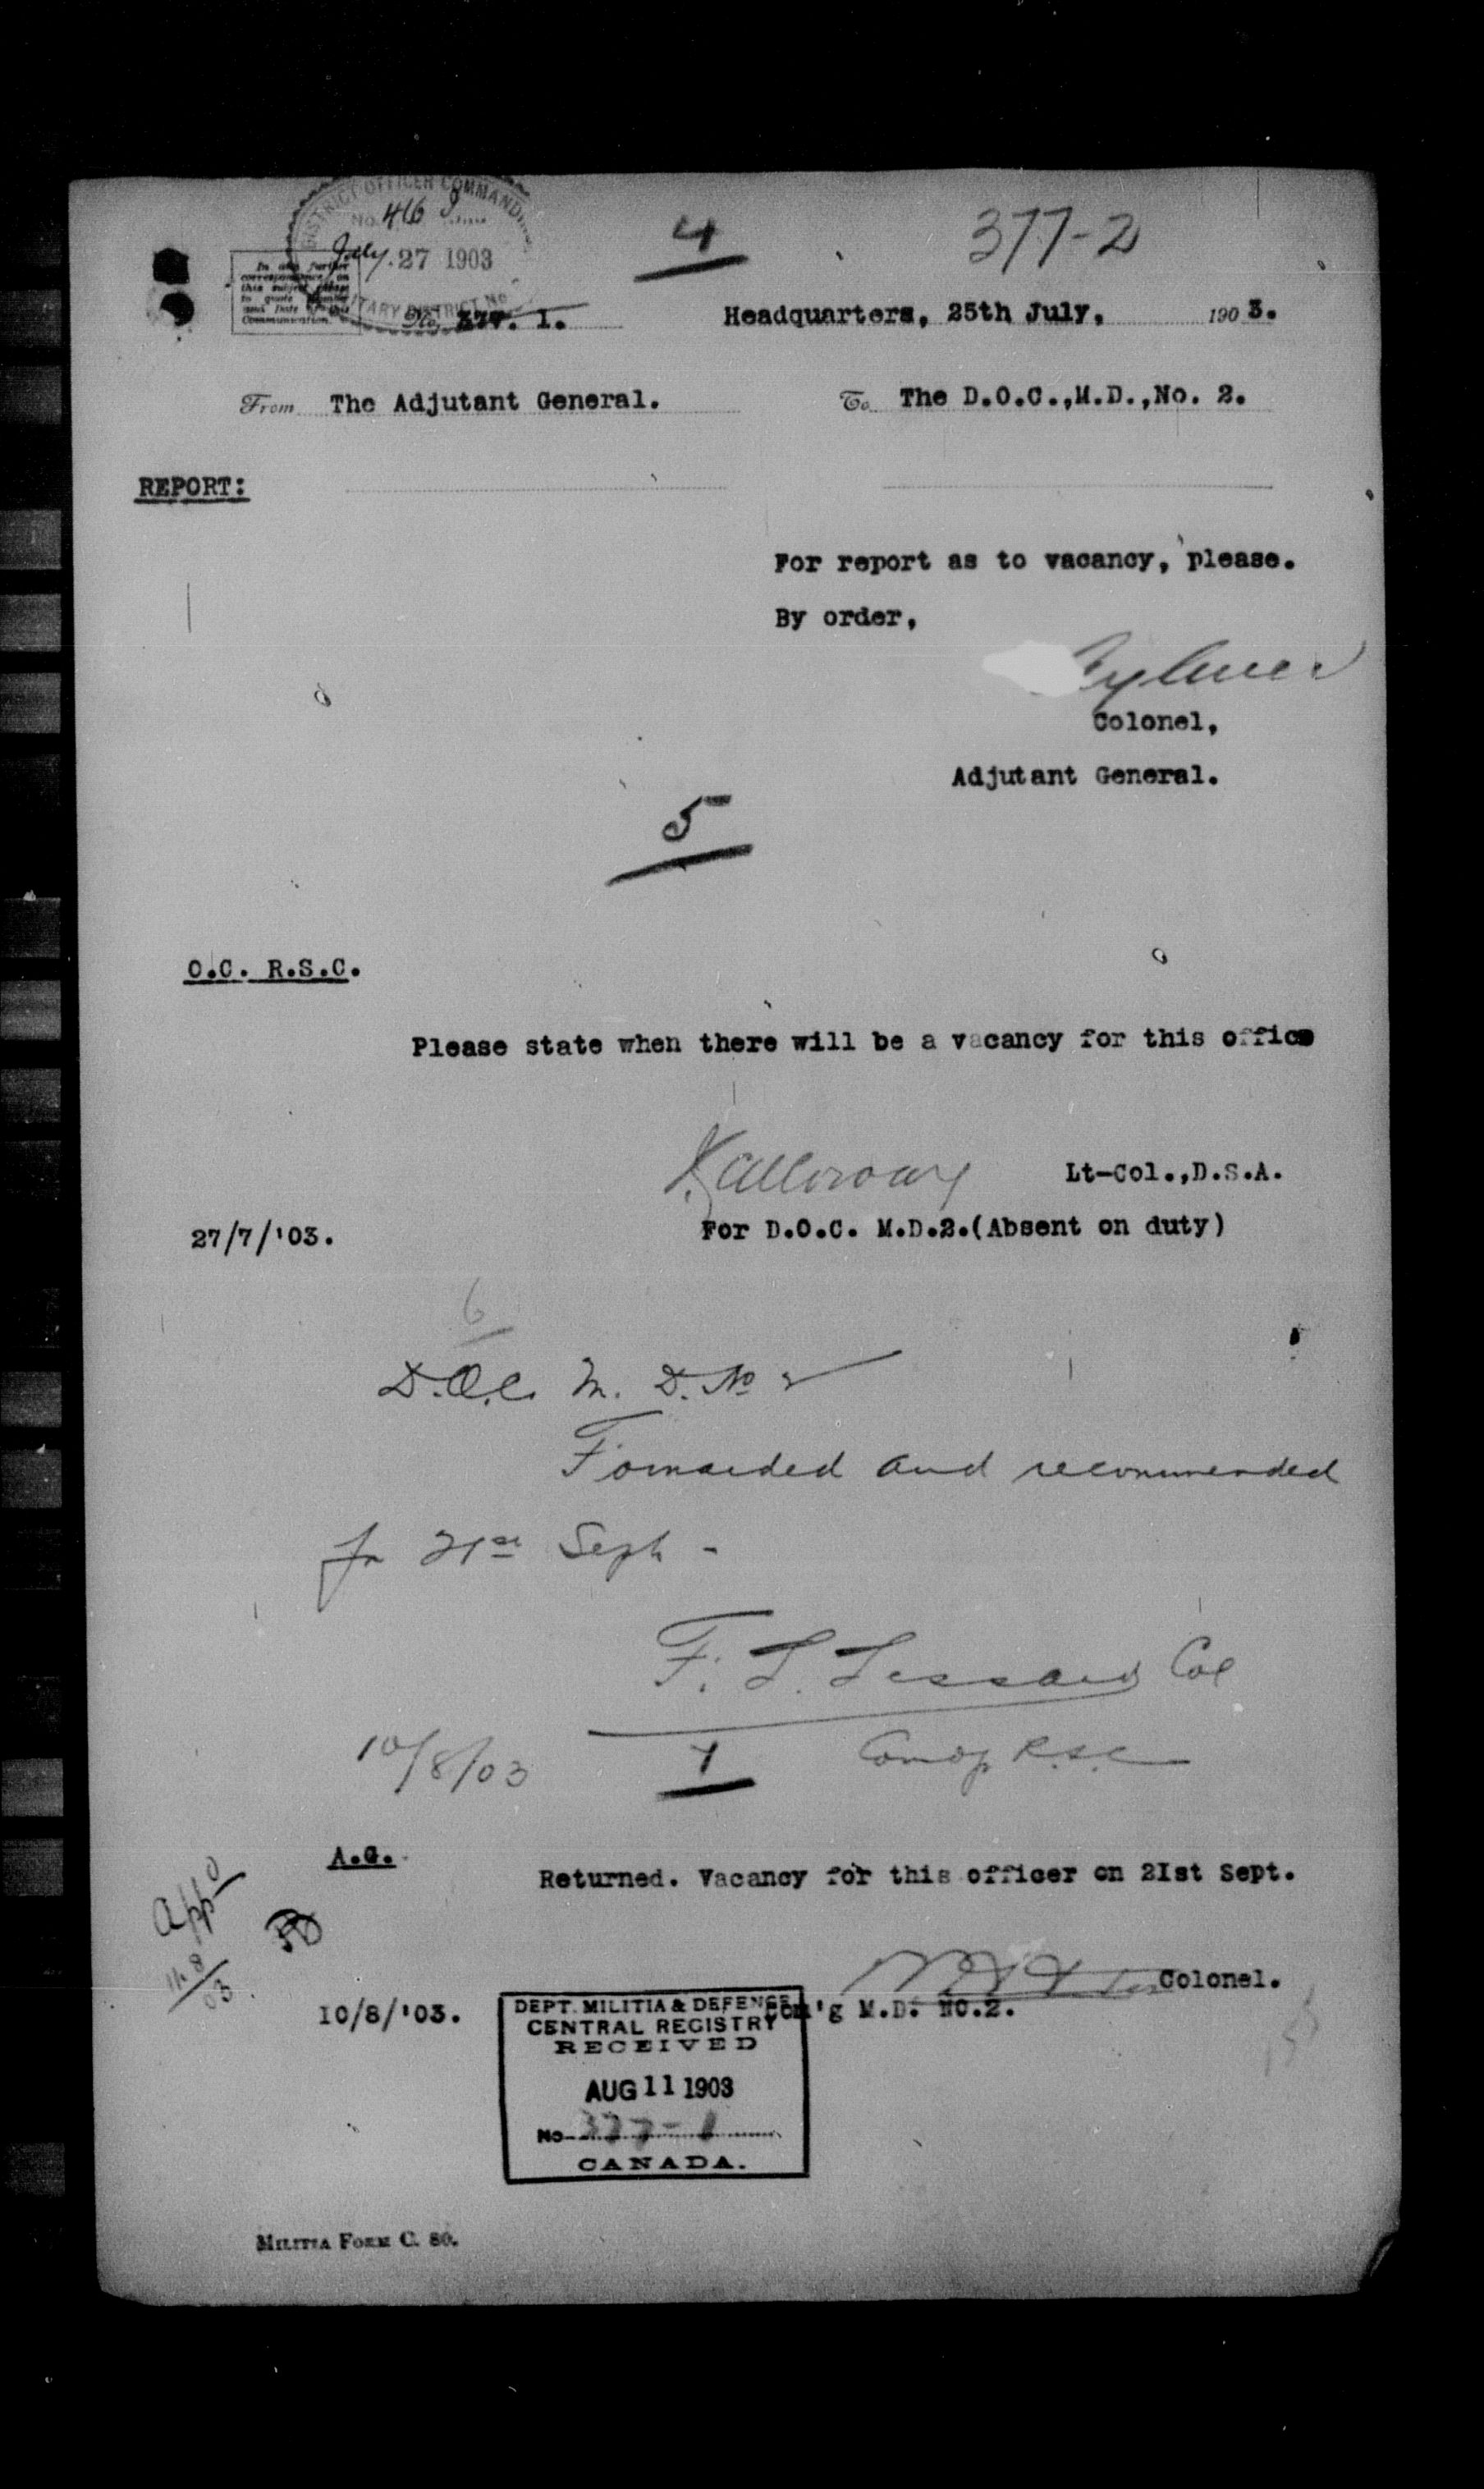 DISTRICT OFFICER COMMANDI
No. 416
July. 27 1903
ITARY DISTRICT No
4
377-2
In any further
correspondence on
this subject please
to quote Number
and Date of this
Communication.
No. 377. 1.
Headquarters, 25th July, 1903.
From The Adjutant General.
To The D.O.C.,M.D.,No. 2.
REPORT:
For report as to vacancy, please.
By order,
Aylmer
Colonel,
Adjutant General.
5
O.C. R.S.C.
Please state when there will be a vacancy for this office
Galloway Lt-Col.,D.S.A.
27/7/'03.
For D.O.C. M.D.2.(Absent on duty)
6
D.O.C. M. D. No 2
Forwarded and recommended
for 21st Sept -
F. L. Lessard Col
10/8/03
7
Comdg R.S.C.
A.G.
Returned. Vacancy for this officer on 2Ist Sept.
App
Colonel.
10/8/'03.
Com'g M.D. NO.2.
DEPT. MILITIA & DEFENCE
CENTRAL REGISTRY
RECEIVED
AUG 11 1903
No 377-1
CANADA.
MILITIA FORM C. 80.